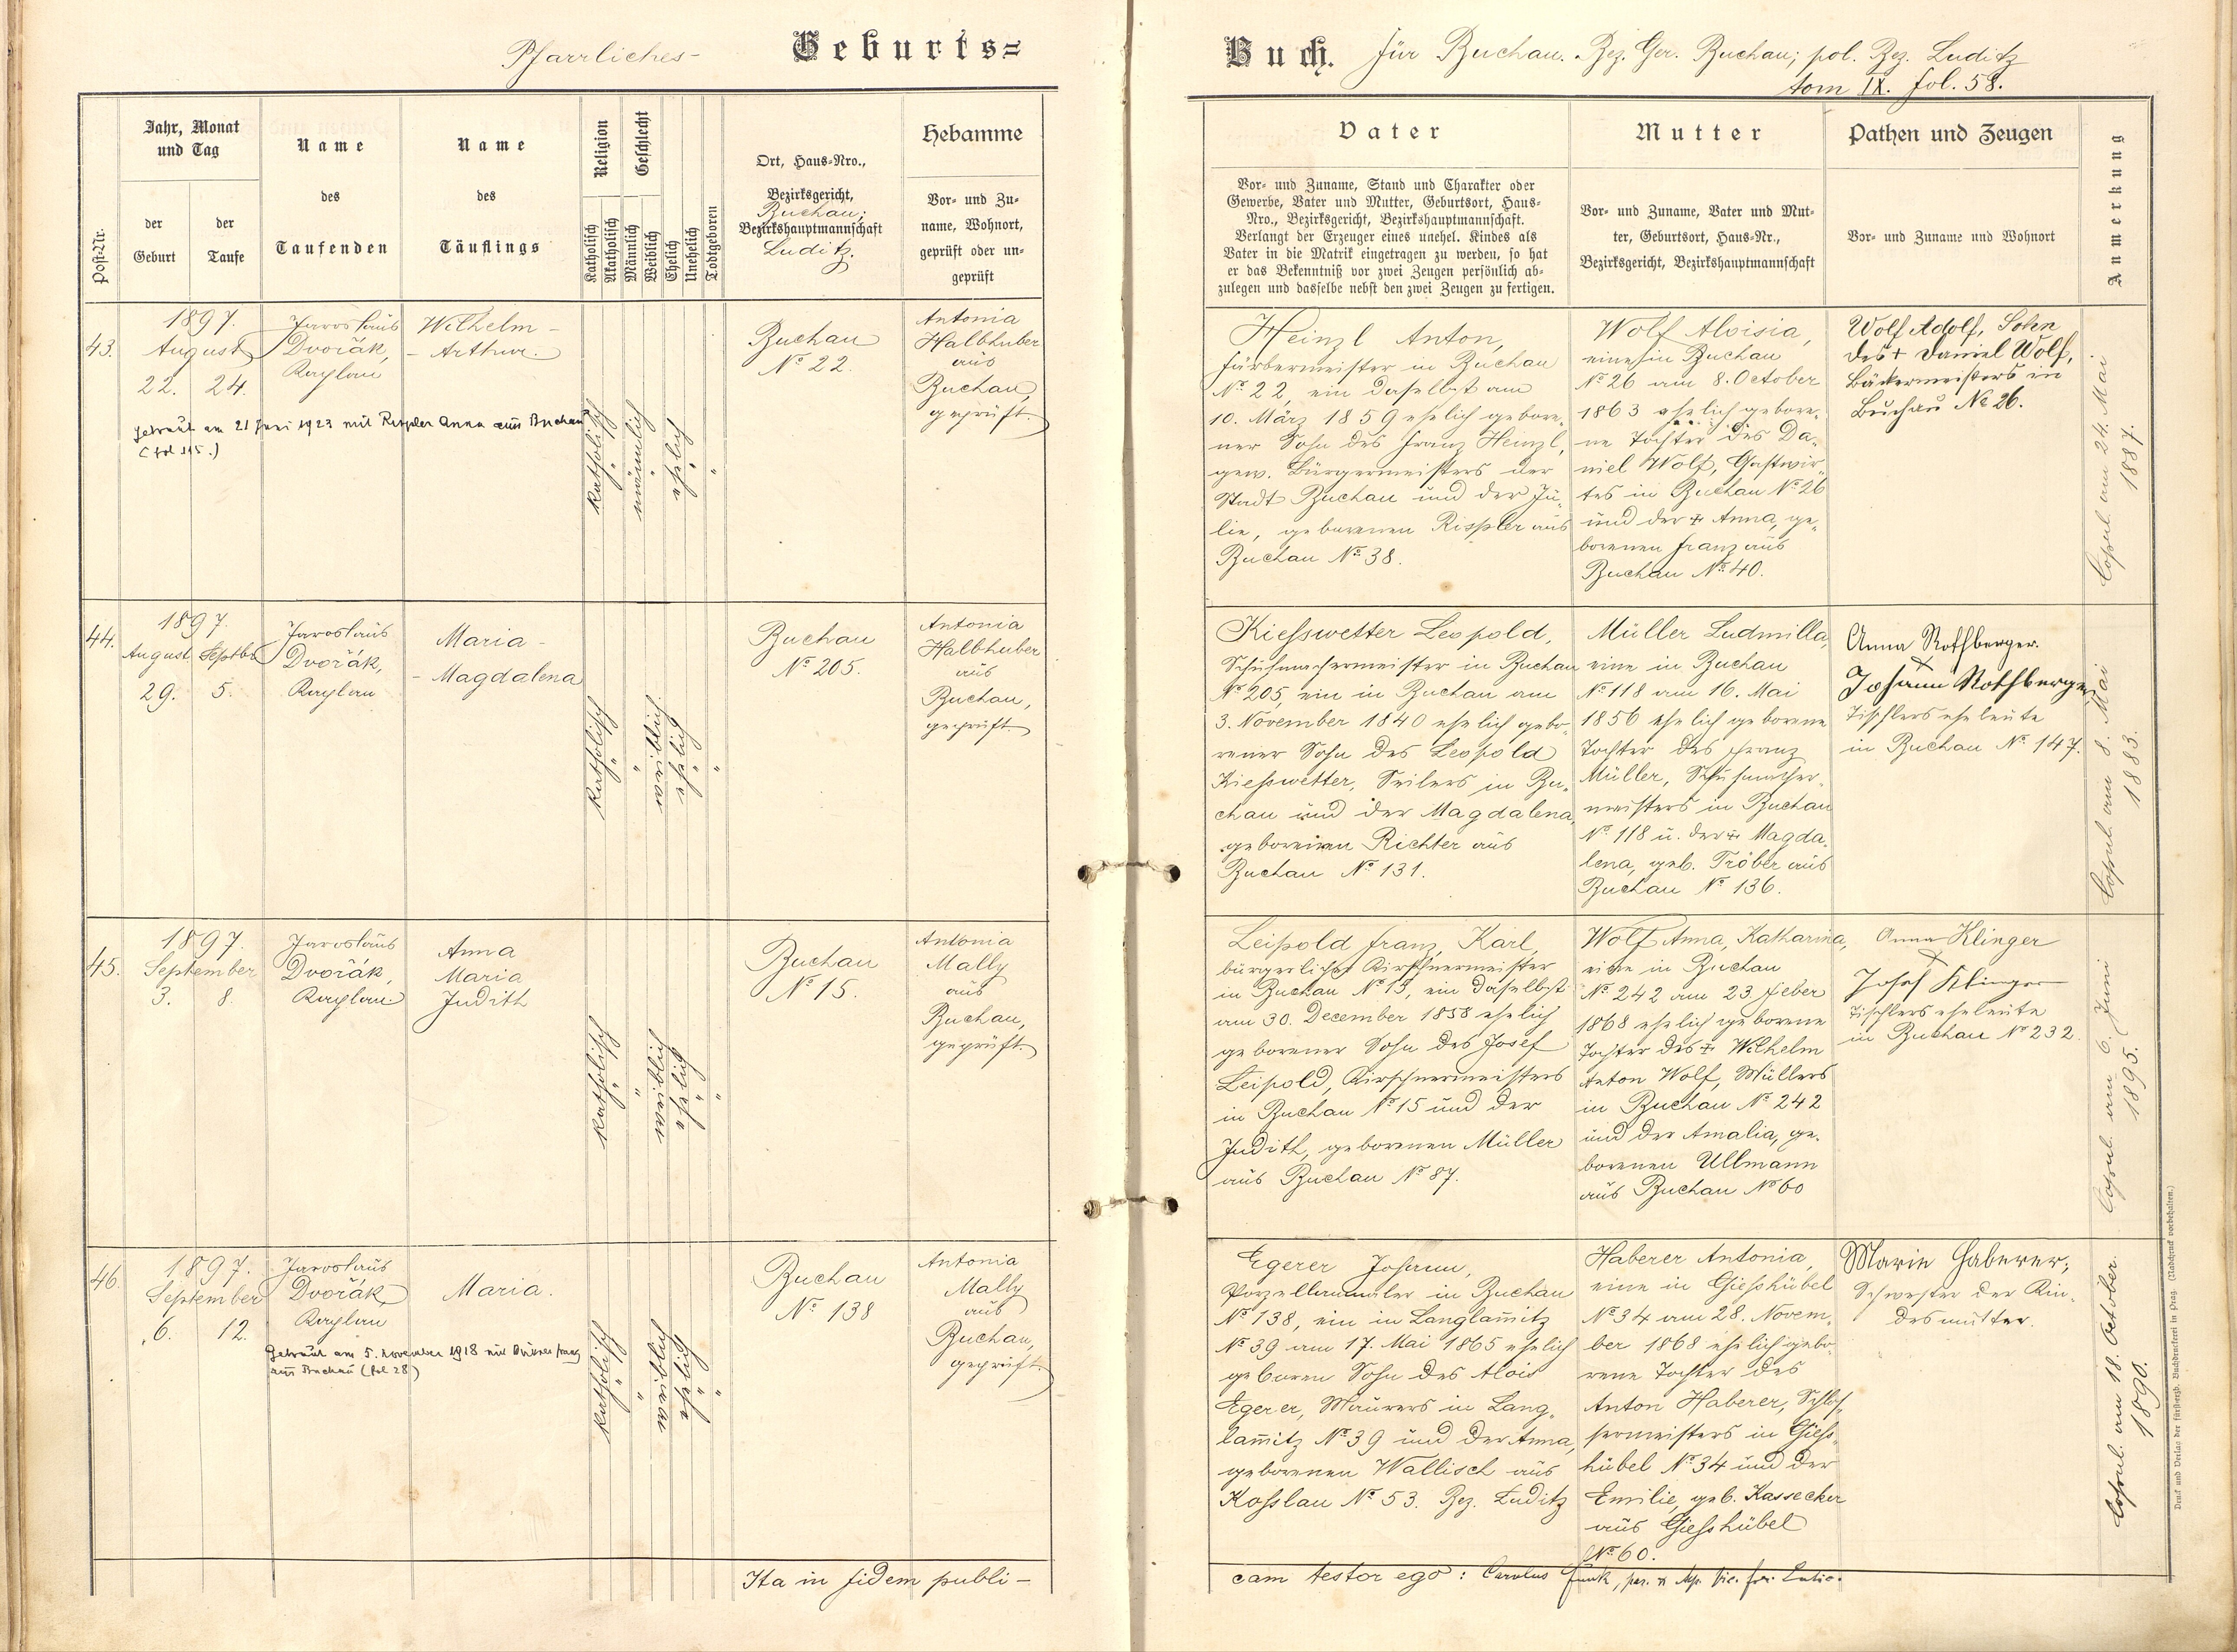 Pfarrliches- Geburts=
Jahr, Monat
und Tag
Name
des
Taufenden
Name
des
Täuflings
Religion
Geschlecht
Ort, Haus-Nro.,
Bezirksgericht,
Buchau;
Bezirkshauptmannschaft
Luditz.
Hebamme
Vor- und Zu-
name, Wohnort,
geprüft oder un-
geprüft
Post-Nr.
der
Geburt
der
Taufe
Katholisch
Akatholisch
Männlich
Weiblich
Ehelich
Unehelich
Todtgeboren
43.
1897.
August
22. 24.
Jaroslaus
Dvořák,
Kaplan
Wilhelm -
- Arthur.
katholisch
männlich
ehelich
Buchau
No 22.
Antonia
Halbhuber
aus
Buchau,
geprüft.
Getraut am 21 Juni 1923 mit Rippler Anna aus Buchau
(fol 115.)
44.
1897.
August Septbr
29. 5.
Jaroslaus
Dvořák,
Kaplan
Maria -
- Magdalena
katholisch
weiblich
ehelich
Buchau
No 205.
Antonia
Halbhuber
aus
Buchau,
geprüft.
45.
1897.
September
3. 8.
Jaroslaus
Dvořák,
Kaplan.
Anna
Maria
Judith
katholisch
weiblich
ehelich
Buchau
No 15.
Antonia
Mally
aus
Buchau,
geprüft.
46.
1897.
September
6. 12.
Jaroslaus
Dvořák,
Kaplan
Maria.
katholisch
weiblich
ehelich
Buchau
No 138
Antonia
Mally
aus
Buchau,
geprüft.
Getraut am 5. November 1918 mit
aus Buchau (fol 28)
Ita in fidem publi-
Buch. für Buchau. Bez. Ger. Buchau; pol. Bez. Luditz
tom IX. fol. 58.
Vater
Vor- und Zuname, Stand und Charakter oder
Gewerbe, Vater und Mutter, Geburtsort, Haus-
Nro., Bezirksgericht, Bezirkshauptmannschaft.
Verlangt der Erzeuger eines unehel. Kindes als
Vater in die Matrik eingetragen zu werden, so hat
er das Bekenntniß vor zwei Zeugen persönlich ab-
zulegen und dasselbe nebst den zwei Zeugen zu fertigen.
Mutter
Vor- und Zuname, Vater und Mut-
ter, Geburtsort, Haus-Nr.,
Bezirksgericht, Bezirkshauptmannschaft
Pathen und Zeugen
Vor- und Zuname und Wohnort
Anmerkung
Heinzl Anton,
Färbermeister in Buchau
No 22, ein daselbst am
10. März 1859 ehelich gebore-
ner Sohn des Franz Heinzl,
gew. Bürgermeisters der
Stadt Buchau und der Ju-
lie, geborenen Rispler aus
Buchau No 38.
Wolf Aloisia,
eine in Buchau
No 26 am 8. October
1863 ehelich gebore-
ne Tochter des Da-
niel Wolf, Gastwir-
tes in Buchau No 26
und der † Anna, ge-
borenen Franz aus
Buchau No 40.
Wolf Adolf, Sohn
des † Daniel Wolf,
Bäckermeisters in
Buchau No 26.
Copul. am 24. Mai
1887.
Kiesswetter Leopold,
Schuhmachermeister in Buchau
No 205, ein in Buchau am
3. November 1840 ehelich gebo-
rener Sohn des Leopold
Kiesswetter, Seilers in Bu-
chau und der Magdalena,
geborenen Richter aus
Buchau No 131.
Müller Ludmilla,
eine in Buchau
No 118 am 16. Mai
1856 ehelich geborene
Tochter des Franz
Müller, Schuhmacher-
meisters in Buchau
No 118 u. der † Magda-
lena, geb. Tröber aus
Buchau No 136.
Anna Rothberger.
×
Johann Rothberger,
Tischlerseheleute
in Buchau No 147.
Copul. am 8. Mai
1883.
Leipold Franz, Karl,
bürgerlicher Kirschnermeister
in Buchau No 15, ein daselbst
am 30. December 1858 ehelich
geborener Sohn des Josef
Leipold, Kirschnermeisters
in Buchau No 15 und der
Judith, geborenen Müller
aus Buchau No 87.
Wolf Anna, Katharina,
eine in Buchau
No 242 am 23. Feber
1868 ehelich geborene
Tochter des † Wilhelm
Anton Wolf, Müllers
in Buchau No 242
und der Amalia, ge-
borenen Ullmann
aus Buchau No 60
Anna Klinger
×
Josef Klinger
Tischlerseheleute
in Buchau No 232.
Copul. am 6. Juni
1895.
Egerer Johann,
Porzellanmaler in Buchau
No 138, ein in Langlamitz
No 39 am 17. Mai 1865 ehelich
geboren Sohn des Alois
Egerer, Maurers in Lang-
lamitz No 39 und der Anna,
geborenen Wallisch aus
Kosslau No 53. Bez. Luditz
Haberer Antonia,
eine in Giesshübel
No 34 am 28. Novem-
ber 1868 ehelich gebo-
rene Tochter des
Anton Haberer, Schlos-
sermeisters in Giess-
hübel No 34 und der
Emilie, geb. Kassecker
aus Giesshübel
No 60.
Marie Haberer,
Schwester der Kin-
desmutter.
Copul. am 18. October
1890.
cam testor ego: Carolus Funk,
Druck und Verlag der fürsterzb. Buchdruckerei in Prag. (Nachdruck vorbehalten.)